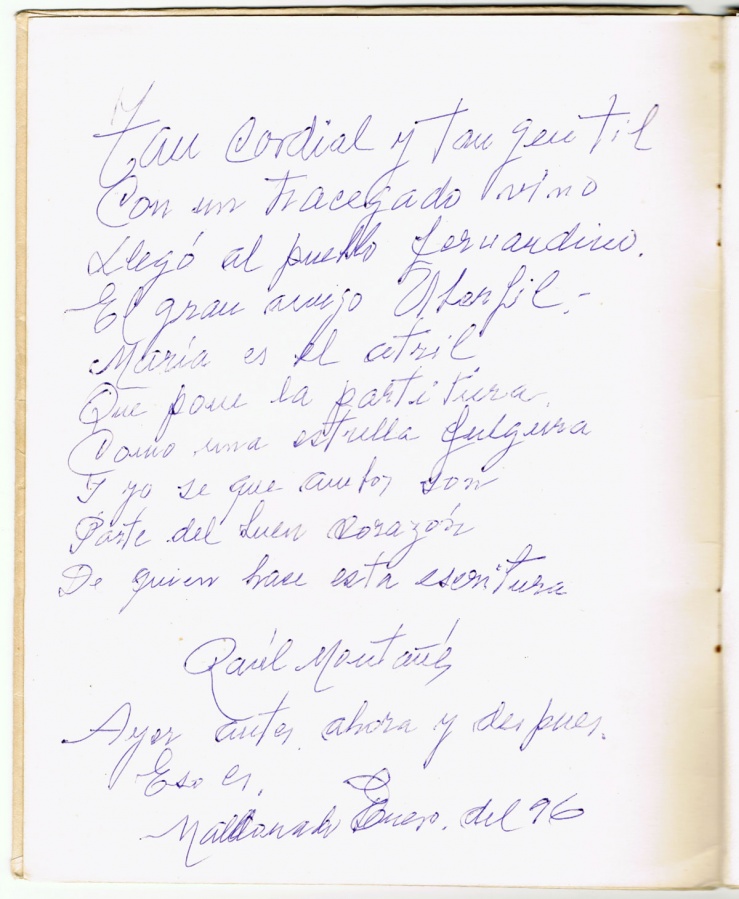 Tan cordial y tan gentil
Con un tracegado vino
Llegó al pueblo fernandino.
El gran amigo Aberfil.-
María es el atril
Que pone la partitura.
Como una estrella fulgura
Y yo se que ambos son
Parte del buen corazón
De quien hace esta escritura
Raúl Montañés
Ayer antes, ahora y despues.
Eso es.
Maldonado Enero. del 96